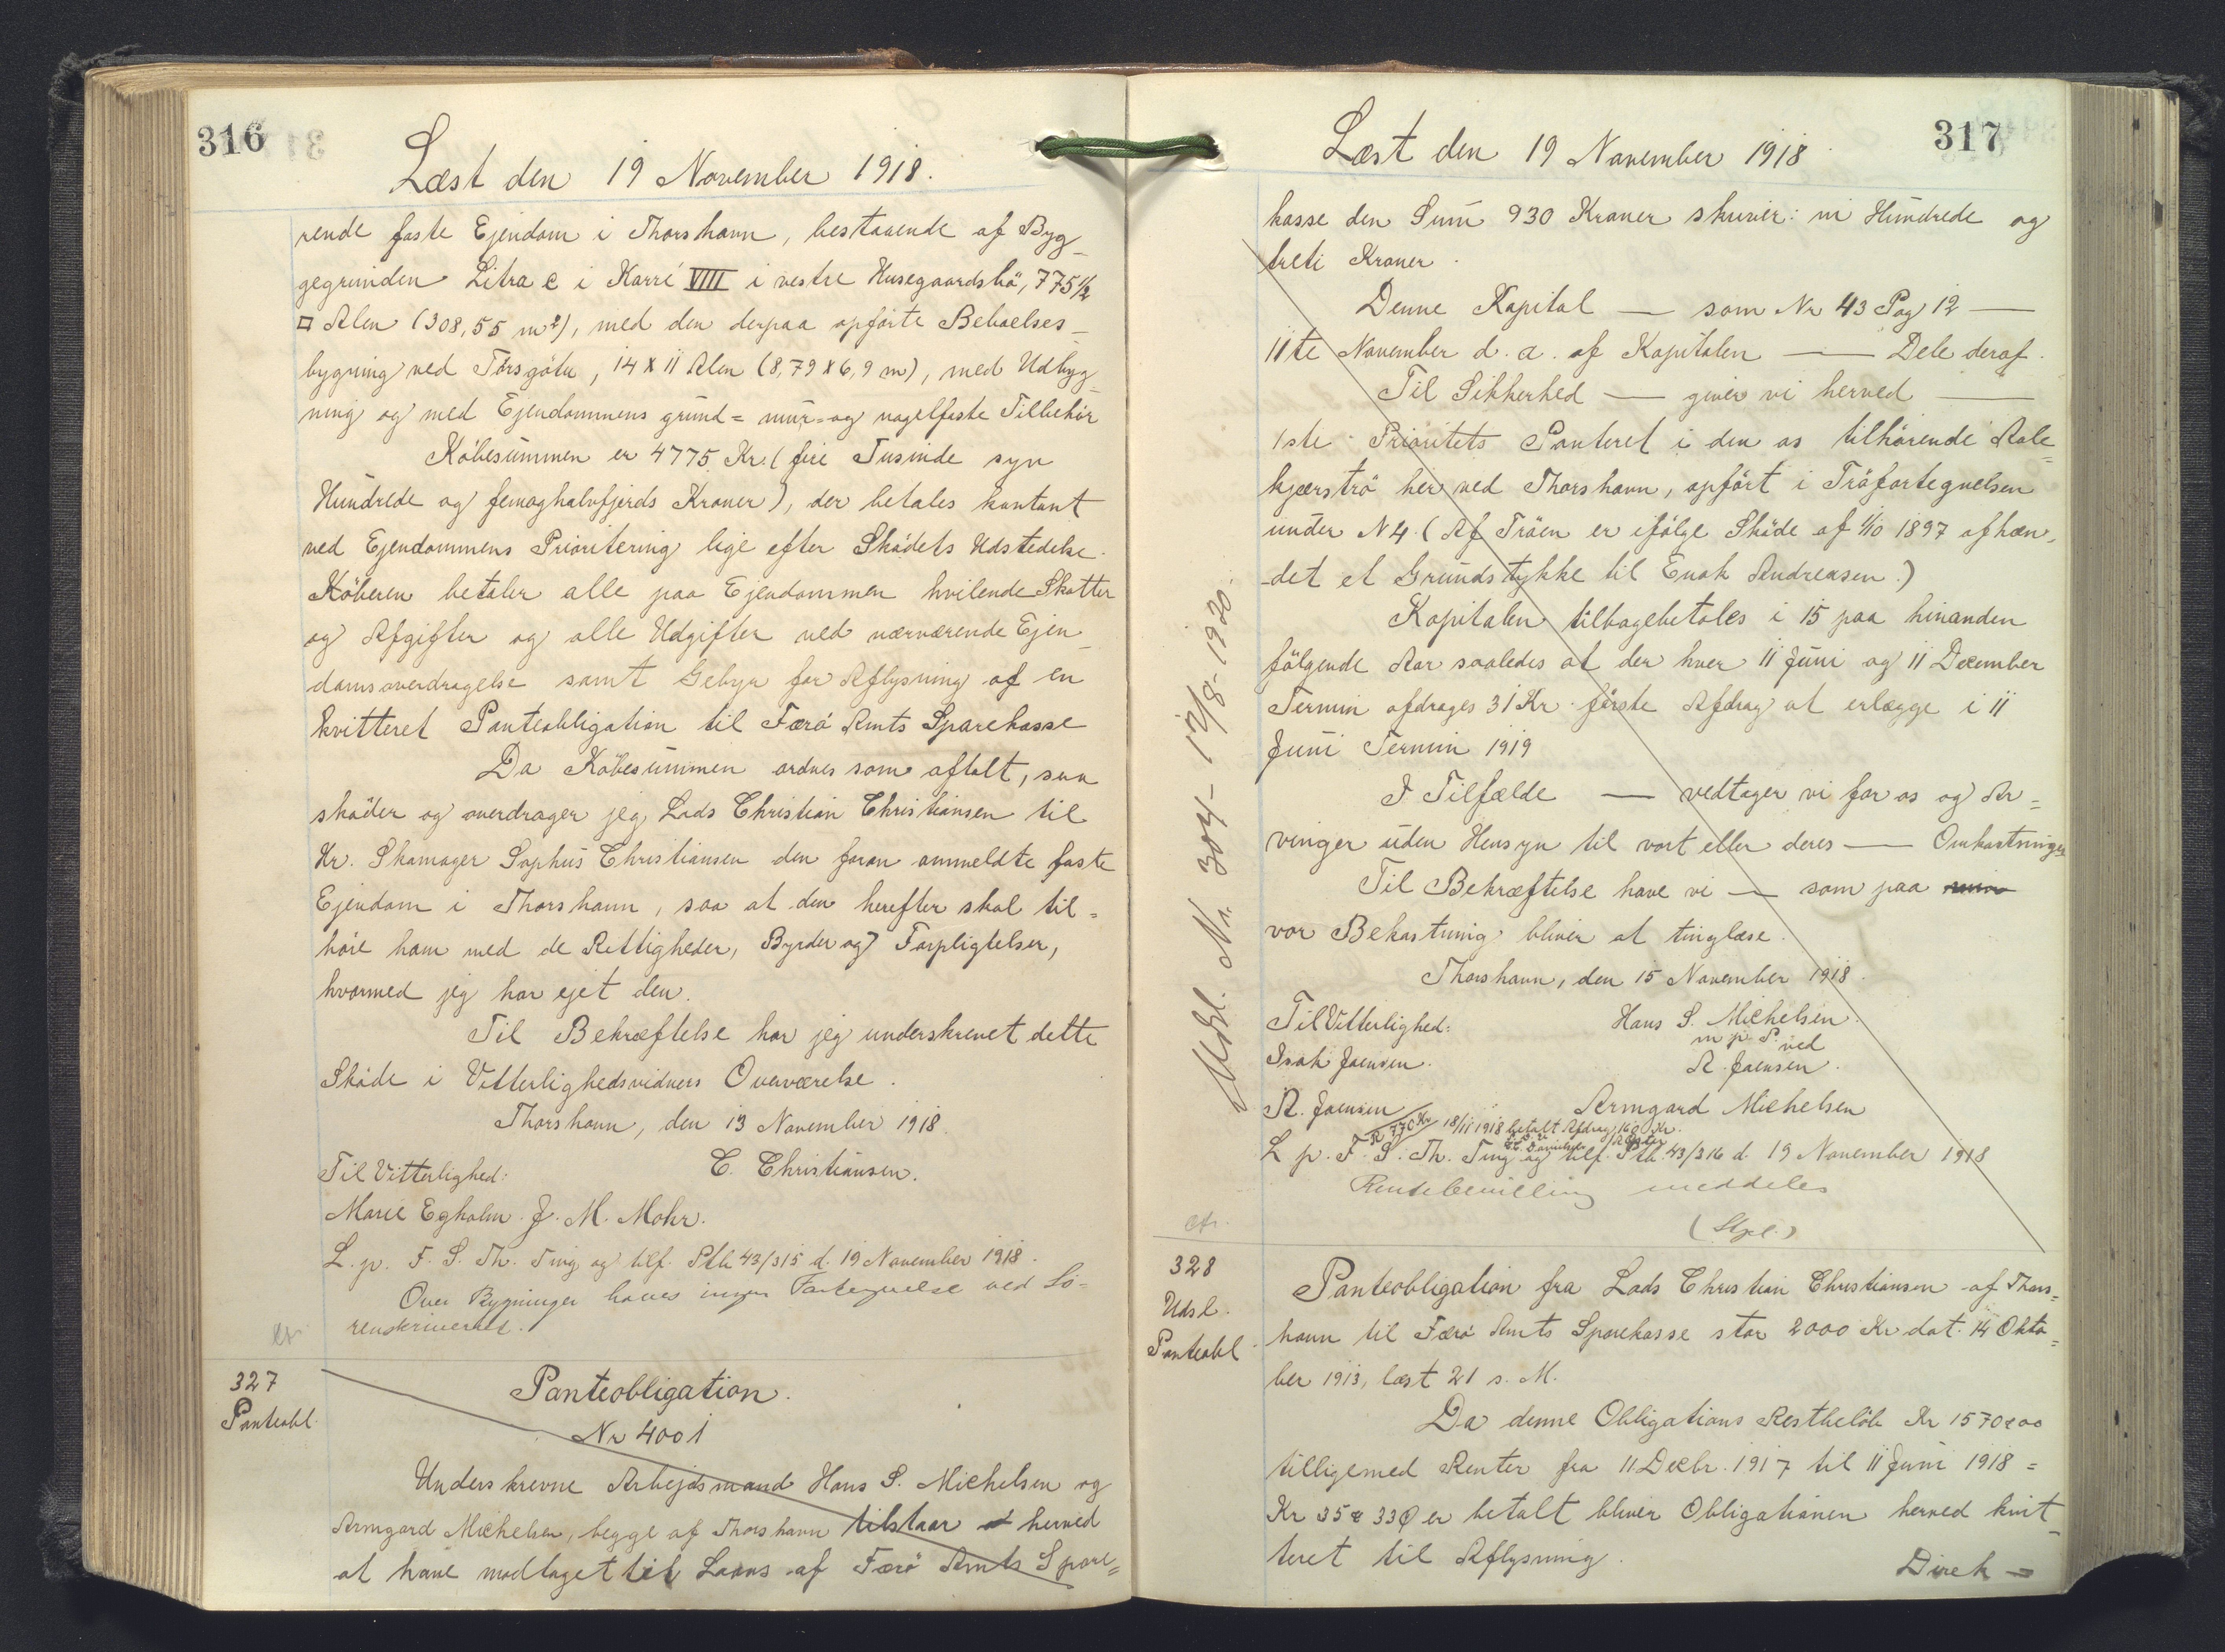 316
Læst den 19 November 1918.
rende faste Ejendom i Thorshavn, bestaaende af Byg-
gegrunden Litra c i Karré VIIII i vestre Husegaardsbö, 775 1/2
□ Alen (308,55 m²), med den derpaa opførte Beboelses-
bygning ved Torsgötu, 14 x 11 Alen (8,79 x 6,9 m), med Udbyg-
ning og med Ejendommens grund= mur= og nagelfaste Tilbehör
Köbesummen er 4775 Kr. (fire Tusinde syv
Hundrede og femoghalvfjerds Kroner), der betales kontant
ved Ejendommens Prioritering lige efter Skødets Udstedelse.
Köberen betaler alle paa Ejendommen hvilende Skatter
og Afgifter og alle Udgifter ved nærværende Ejen-
domsoverdragelse samt Gebyr for Aflysning af en
kvitteret Panteobligation til Færø Amts Sparekasse
Da Köbesummen ordnes som aftalt, saa
skøder og overdrager jeg Lads Christian Christiansen til
Hr. Skomager Sophus Christiansen den foran ommeldte faste
Ejendom i Thorshavn, saa at den herefter skal til=
höre ham med de Rettigheder, Byrder og Forpligtelser,
hvormed jeg har ejet den.
Til Bekræftelse har jeg underskrevet dette
Sköde i Vitterlighedsvidners Overværelse.
Thorshavn, den 13 November 1918.
Til Vitterlighed: C. Christiansen.
Marie Egholm. J. M. Mohr.
L. p. F. S. Th. Ting og tilf. Ptb 43/315 d. 19 November 1918.
Over Bygninger haves ingen Fortegnelse ved So-
renskriveriet.
327
Panteobl.
Panteobligation.
Nr 4001
Underskrevne Arbejdsmand Hans S. Michelsen og
Armgard Michelsen, begge af Thorshavn tilstaar herved
at have modtaget til Laans af Færø Amts Spare=
317
Læst den 19 November 1918
kasse den Sum 930 Kroner skriver: ni Hundrede og
treti Kroner.
Denne Kapital — som Nr 43 Pag 12 —
11te November d. a. af Kapitalen — Dele deraf.
Til Sikkerhed — giver vi herved —
1ste Prioritets Panteret i den os tilhörende Aale-
kjærströ her ved Thorshavn, opfört i Tröfortegnelsen
under N 4. (Af Tröen er ifölge Sköde af 1/10 1897 afhæn-
-det et Grundstykke til Enok Andreasen.)
Kapitalen tilbagebetales i 15 paa hinanden
fölgende Aar saaledes at der hver 11 Juni og 11 December
Termin afdrages 31 Kr. förste Afdrag at erlægge i 11
Juni Termin 1919
I Tilfælde — vedtager vi for os og Ar=
vinger uden Hensyn til vort eller deres — Omkostninger
Til Bekræftelse have vi — som paa min
vor Bekostning bliver at tinglæse.
Thorshavn, den 15 November 1918.
Til Vitterlighed: Hans S. Michelsen.
m. p. P. ved
Isak Joensen. A. Joensen.
A. Joensen Armgard Michelsen
R 770 Kr 18/11 1918 betalt Afdrag 160 Kr.
L p. F. S. Th. Ting og tilf. Ptb. 43/316 d 19 November 1918
Rentebevilling meddeles
Udsl. Nr. 304 - 17/8 - 1920.
328
Udsl.
Panteobl.
Panteobligation fra Lads Christian Christiansen af Thors=
havn til Færø Amts Sparekasse stor 2000 Kr dat. 14 Okto=
ber 1913, læst 21 s. M.
Da denne Obligations Restbelöb Kr 1570 x 00
tilligemed Renter fra 11 Decbr. 1917 til 11 Juni 1918 =
Kr 35 x 33 Ø er betalt bliver Obligationen herved kvit-
teret til Aflysning.
Direk =